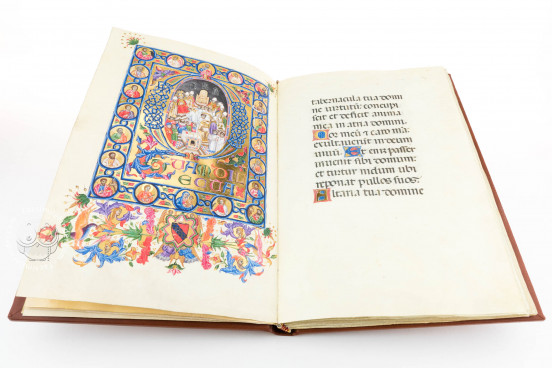 QUAM DI
LECTA
tabernacula tua domi
ne uirtutū: concupi
scit et deficit anima
mea in atria domini.
Cor meū ⁊ caro mea
exultauerūt in deum
uiuum. Etenī passer
inuenit sibi domum:
et turtur nidum ubi
reponat pullos suos:
Altaria tua domine